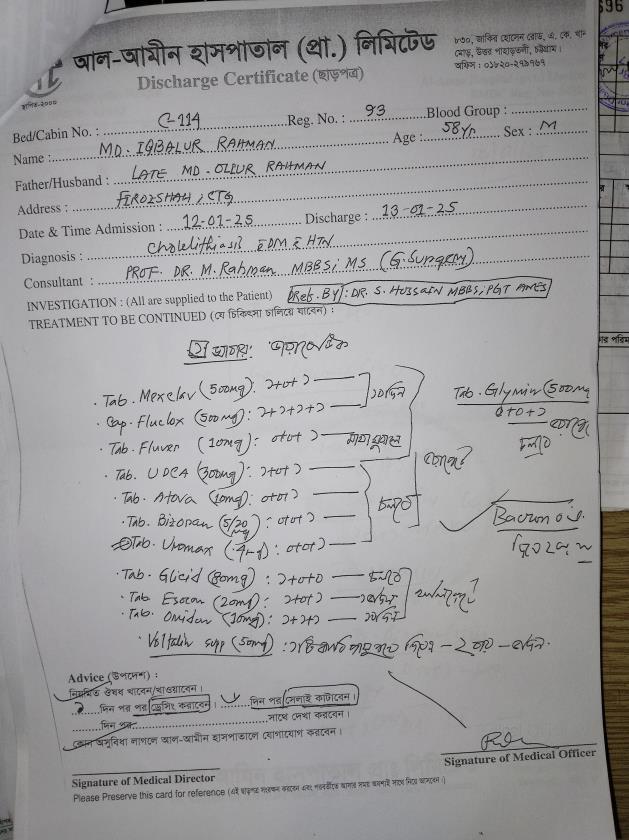 আল-আমীন হাসপাতাল (প্রা.) লিমিটেড
৮৩০, জাকির হোসেন রোড, এ. কে. খান
মোড়, উত্তর পাহাড়তলী, চট্টগ্রাম।
অফিস : ০১৮২০-২৭৯৭৬৭
স্থাপিত-২০০০
Discharge Certificate (ছাড়পত্র)
Bed/Cabin No. : C-114 Reg. No. : 93 Blood Group :
Name : MD. IQBALUR RAHMAN Age : 58 Yr Sex : M
Father/Husband : LATE MD. OLIUR RAHMAN
Address : FIROZSHAH, CTG
Date & Time Admission : 12-01-25 Discharge : 13-01-25
Diagnosis : Cholelithiasis c DM c HTN
Consultant : PROF. DR. M. Rahman MBBS, MS (G. Surgery)
INVESTIGATION : (All are supplied to the Patient) Ref. By : DR. S. HUSSAIN MBBS, PGT
TREATMENT TO BE CONTINUED (যে চিকিৎসা চালিয়ে যাবেন) :
ডায়াবেটিক
Tab. Mexclav (500mg): ১+০+১
Cap. Fluclox (500mg): ১+১+১+১
Tab. Fluver (10mg): ০+০+১
Tab. UDCA (300mg): ১+০+১
Tab. Atova (10mg): ০+০+১
Tab. Bizoran (5/20 mg): ০+০+১
Tab. Uromax (.4mg): ০+০+১
Tab. Glicid (80mg): ১+০+০ চলবে
Tab. Esoran (20mg): ১+০+১
Tab. Omidon (10mg): ১+১+১
Voltalin supp (50mg) :
Tab. Glymin (500mg
০+০+১
চলবে
চলবে
Advice (উপদেশ) :
নিয়মিত ঔষধ খাবেন/খাওয়াবেন।
দিন পর পর ড্রেসিং করাবেন। দিন পর সেলাই কাটাবেন।
দিন পর সাথে দেখা করবেন।
কোন অসুবিধা লাগলে আল-আমীন হাসপাতালে যোগাযোগ করবেন।
Signature of Medical Director
Signature of Medical Officer
Please Preserve this card for reference (এই ছাড়পত্র সংরক্ষন করবেন এবং পরবর্তীতে আসার সময় অবশ্যই সাথে নিয়ে আসবেন।)